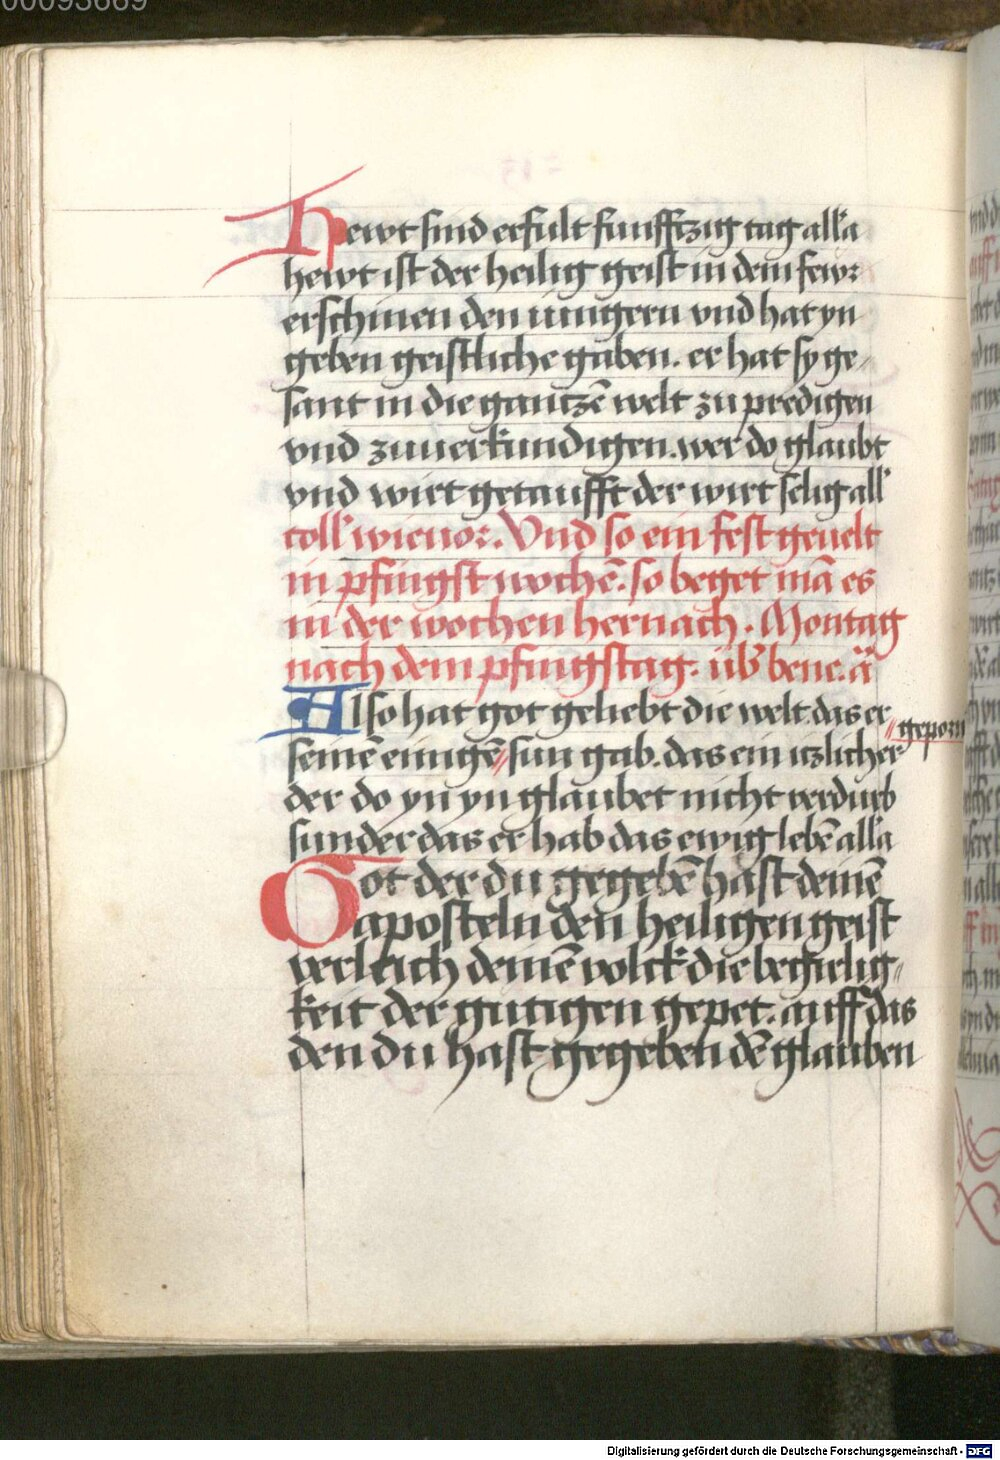 00093669
Hewt sind erfult funfftzig tag all'a
hewt ist der heilig geist in dem fewr
erschinen den iungern vnd hat yn
geben geistliche gaben. er hat sy ge-
sant in die gantzē welt zu predigen
vnd zuuerkundigen. wer do glaubt
vnd wirt getaufft der wirt selig all'
coll' wie vor. Vnd so ein fest geuelt
in pfingst wochē. so beget mā es
in der wochen hernach. Montag
nach dem pfingstag. üb' bene. ā
Also hat got geliebt die welt. das er
geporn
seinē einigē sun gab. das ein itzlicher
der do yn yn glaubet nicht verdurb
sunder das er hab das ewig lebē all'a
Got der du gegebē hast deinē
aposteln den heiligen geist
verleich deinē volck die begirlig-
keit der gutigen gepet. auff das
den du hast gegeben dē glauben
Digitalisierung gefördert durch die Deutsche Forschungsgemeinschaft - DFG